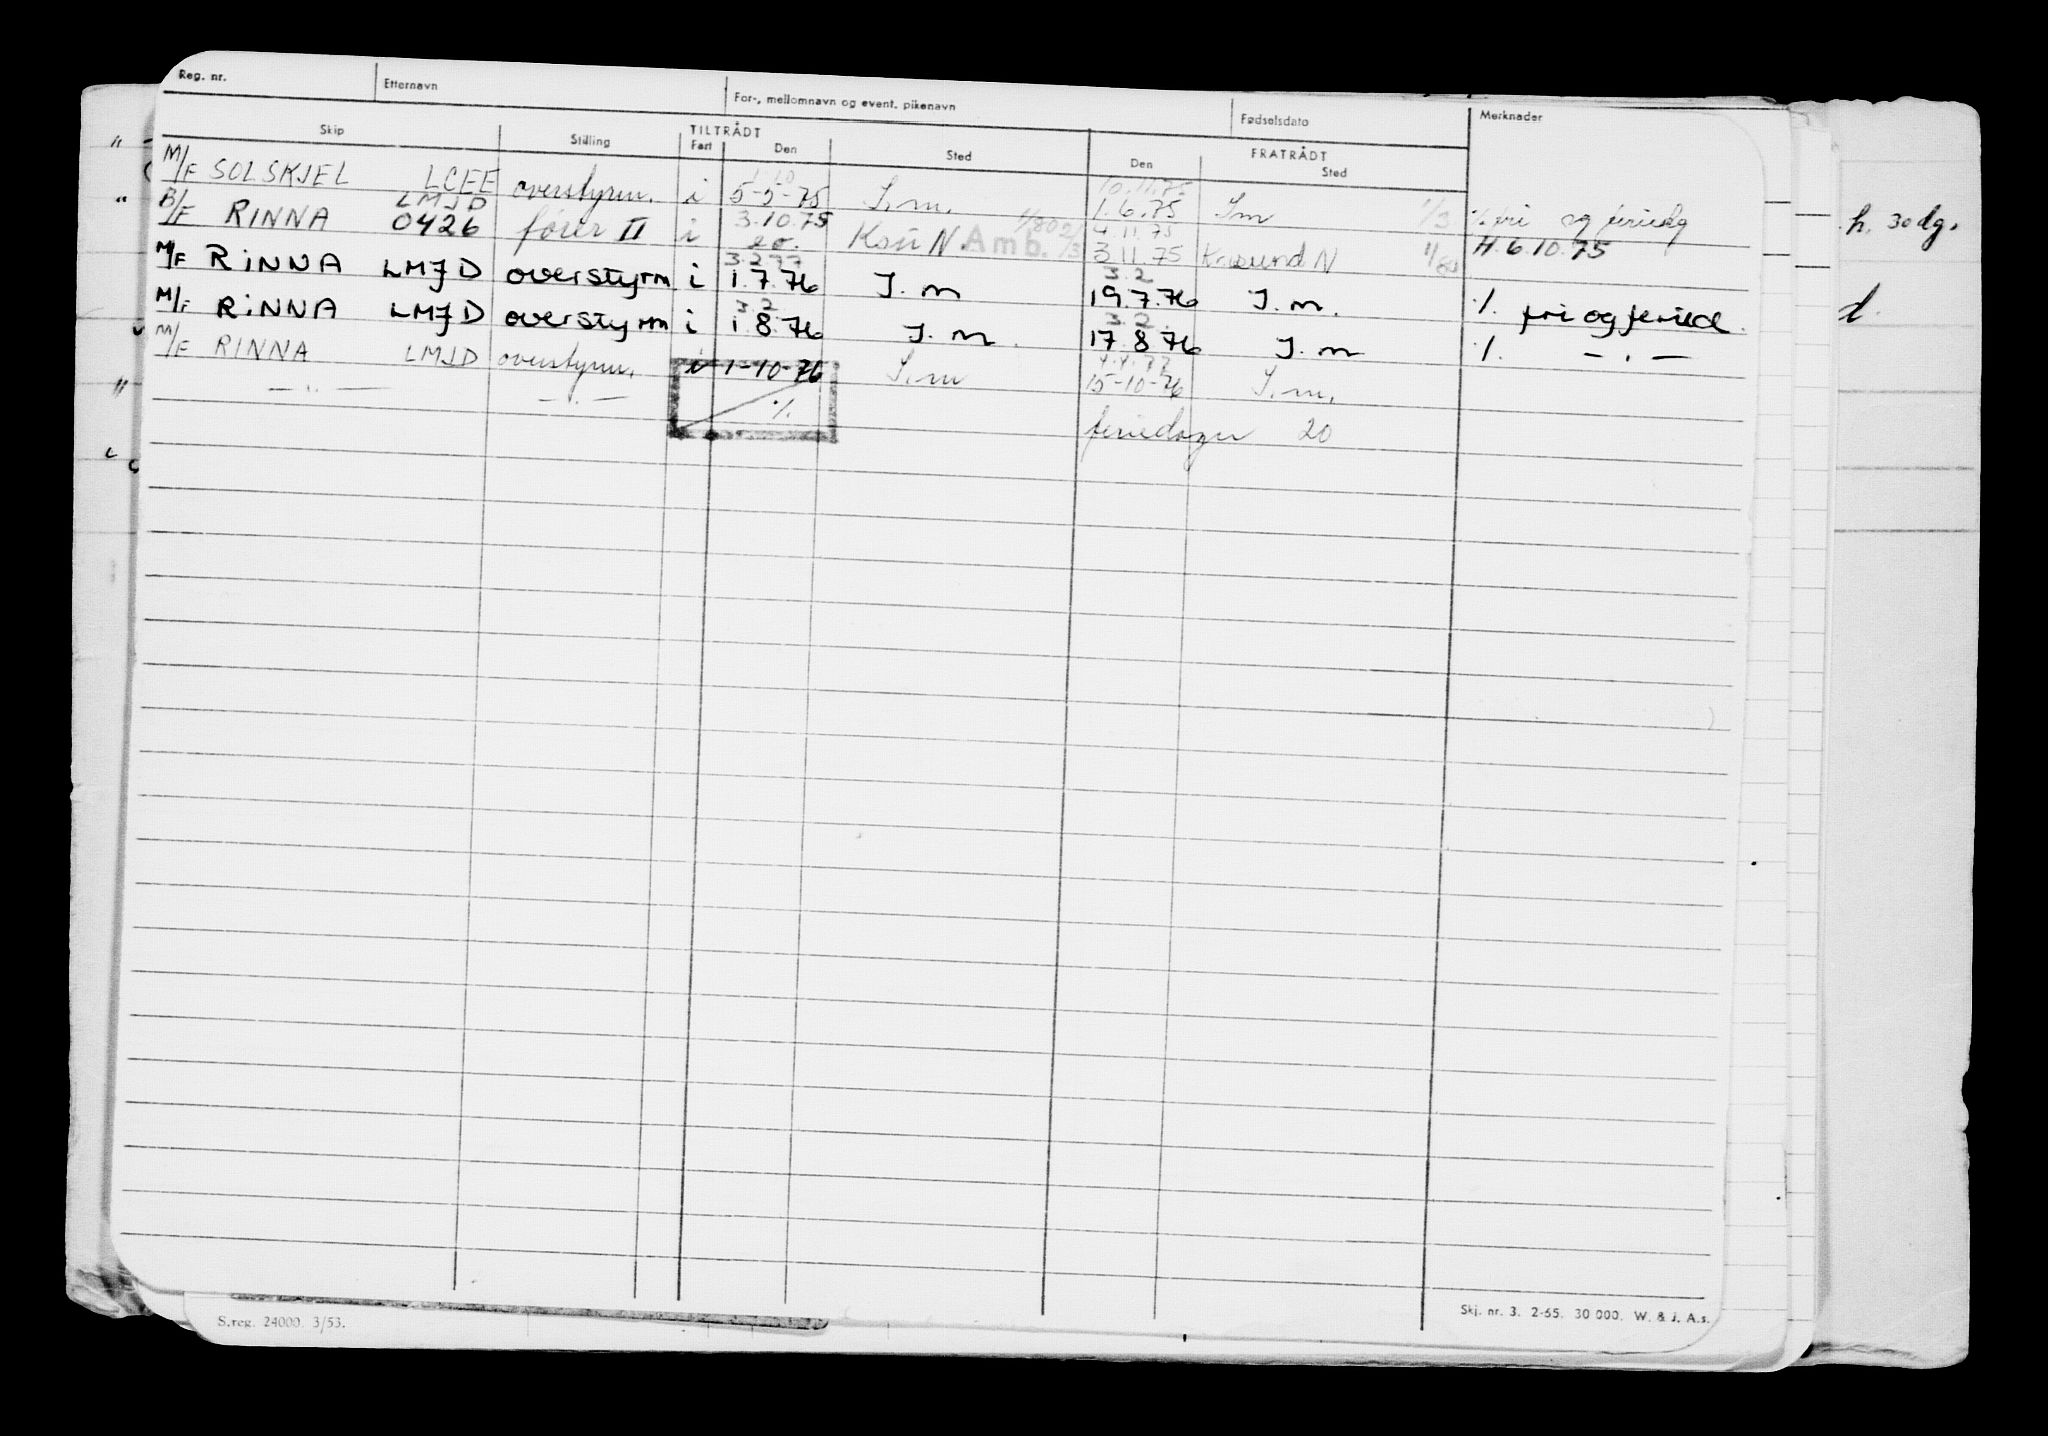 Reg. nr. Etternavn For-, mellomnavn og event. pikenavn Fødselsdato Merknader
Skip Stilling TILTRÅDT FRATRÅDT
Fart Den Sted Den Sted
M/F SOLSKJEL LCEE overstyrm. i 5-5-75 S.m. 1.6.75 Sm % fri og feriedg
1.10 10.11.75 1/3
B/F RINNA LMJD 0426 fører II i 3.10.75 Ksu N. Amb. 3.11.75 Kr.sund N 11/80 H.6.10.75
e.o. 4.11.75
M/F RINNA LMJD overstyrm i 1.7.76 S.m 19.7.76 S.m. % fri og feried.
3.2 77 3.2
M/F RINNA LMJD overstyrm i 1.8.76 S.m. 17.8.76 S.m % — . —
3.2 3.2
M/F RINNA LMJD overstyrm. i 1-10-76 S.m 15-10-76 S.m.
4.4.77
— " — — " — % feriedager 20
h. 30 dg.
S.reg. 24000. 3/53.
Skj. nr. 3. 2-65. 30 000. W. & J. A.s.